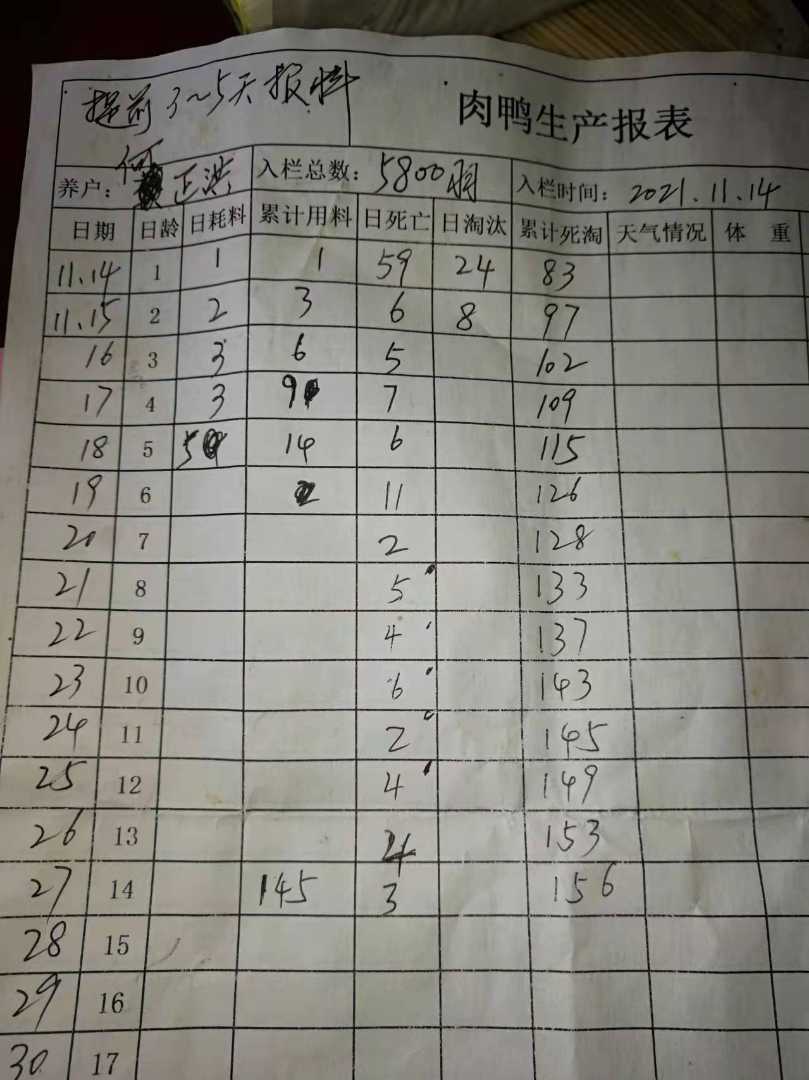 提前3~5天报料
肉鸭生产报表
养户：何正洪 入栏总数：5800羽 入栏时间：2021.11.14
日期 日龄 日耗料 累计用料 日死亡 日淘汰 累计死淘 天气情况 体 重
11.14 1 1 1 59 24 83
11.15 2 2 3 6 8 97
16 3 3 6 5 102
17 4 3 9 7 109
18 5 5 14 6 115
19 6 11 126
20 7 2 128
21 8 5 133
22 9 4 137
23 10 6 143
24 11 2 145
25 12 4 149
26 13 4 153
27 14 145 3 156
28 15
29 16
30 17